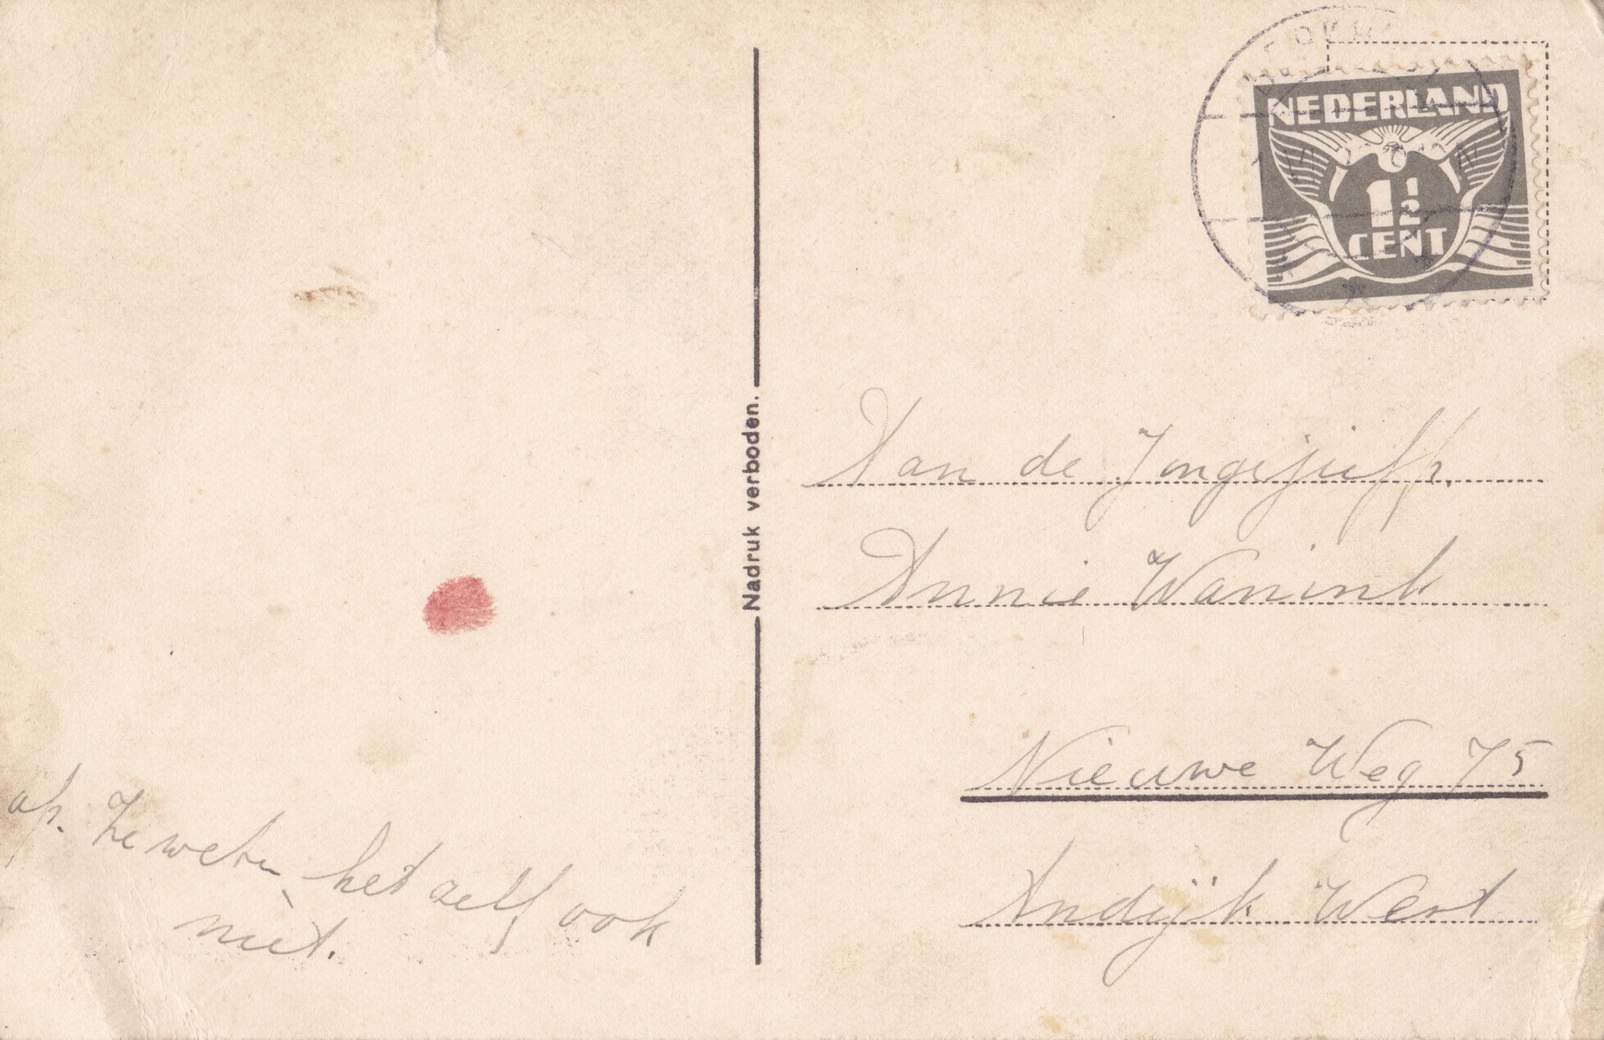 NEDERLAND
1½
CENT
Nadruk verboden.
Aan de Jongejuffr.
Annie Wanink
Nieuwe Weg 75
Andijk West
op. Ze weten het zelf ook
niet.